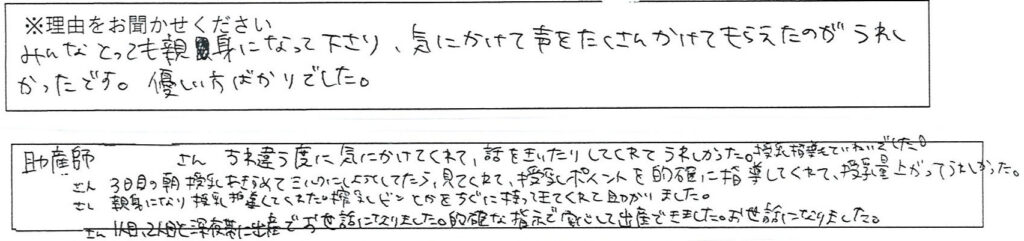 ※理由をお聞かせください
みんなとっても親身になって下さり、気にかけて声をたくさんかけてもらえたのがうれし
かったです。優しい方ばかりでした。
助産師 さん すれ違う度に気にかけてくれて、話をきいたりしてくれてうれしかった。授乳指導もていねいでした。
さん 3日目の朝授乳あきらめてミルクにしようとしてたら、見てくれて、授乳ポイントを的確に指導してくれて、授乳量上がってうれしかった。
さん 親身になり授乳指導してくれたり搾乳ビンとかをすぐに持って来てくれて助かりました。
さん 1人目、2人目と深夜帯に出産でお世話になりました。的確な指示で安心して出産できました。お世話になりました。